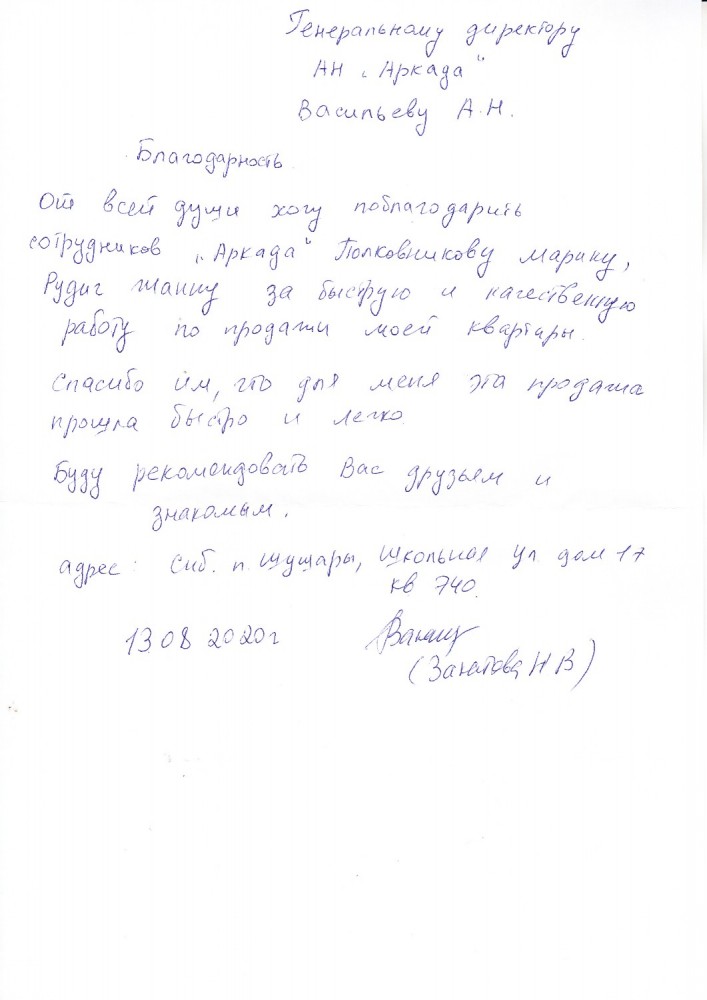 Генеральному директору
АН "Аркада"
Васильеву А.Н.
Благодарность.
От всей души хочу поблагодарить
сотрудников "Аркада" Полковникову Марину,
Рудич Жанну за быструю и качественную
работу по продажи моей квартиры.
Спасибо им, что для меня эта продажа
прошла быстро и легко.
Буду рекомендовать Вас друзьям и
знакомым.
адрес: Спб. п. Шушары, Школьная ул. дом 17
кв 740.
13 08 2020 г
( Н В)